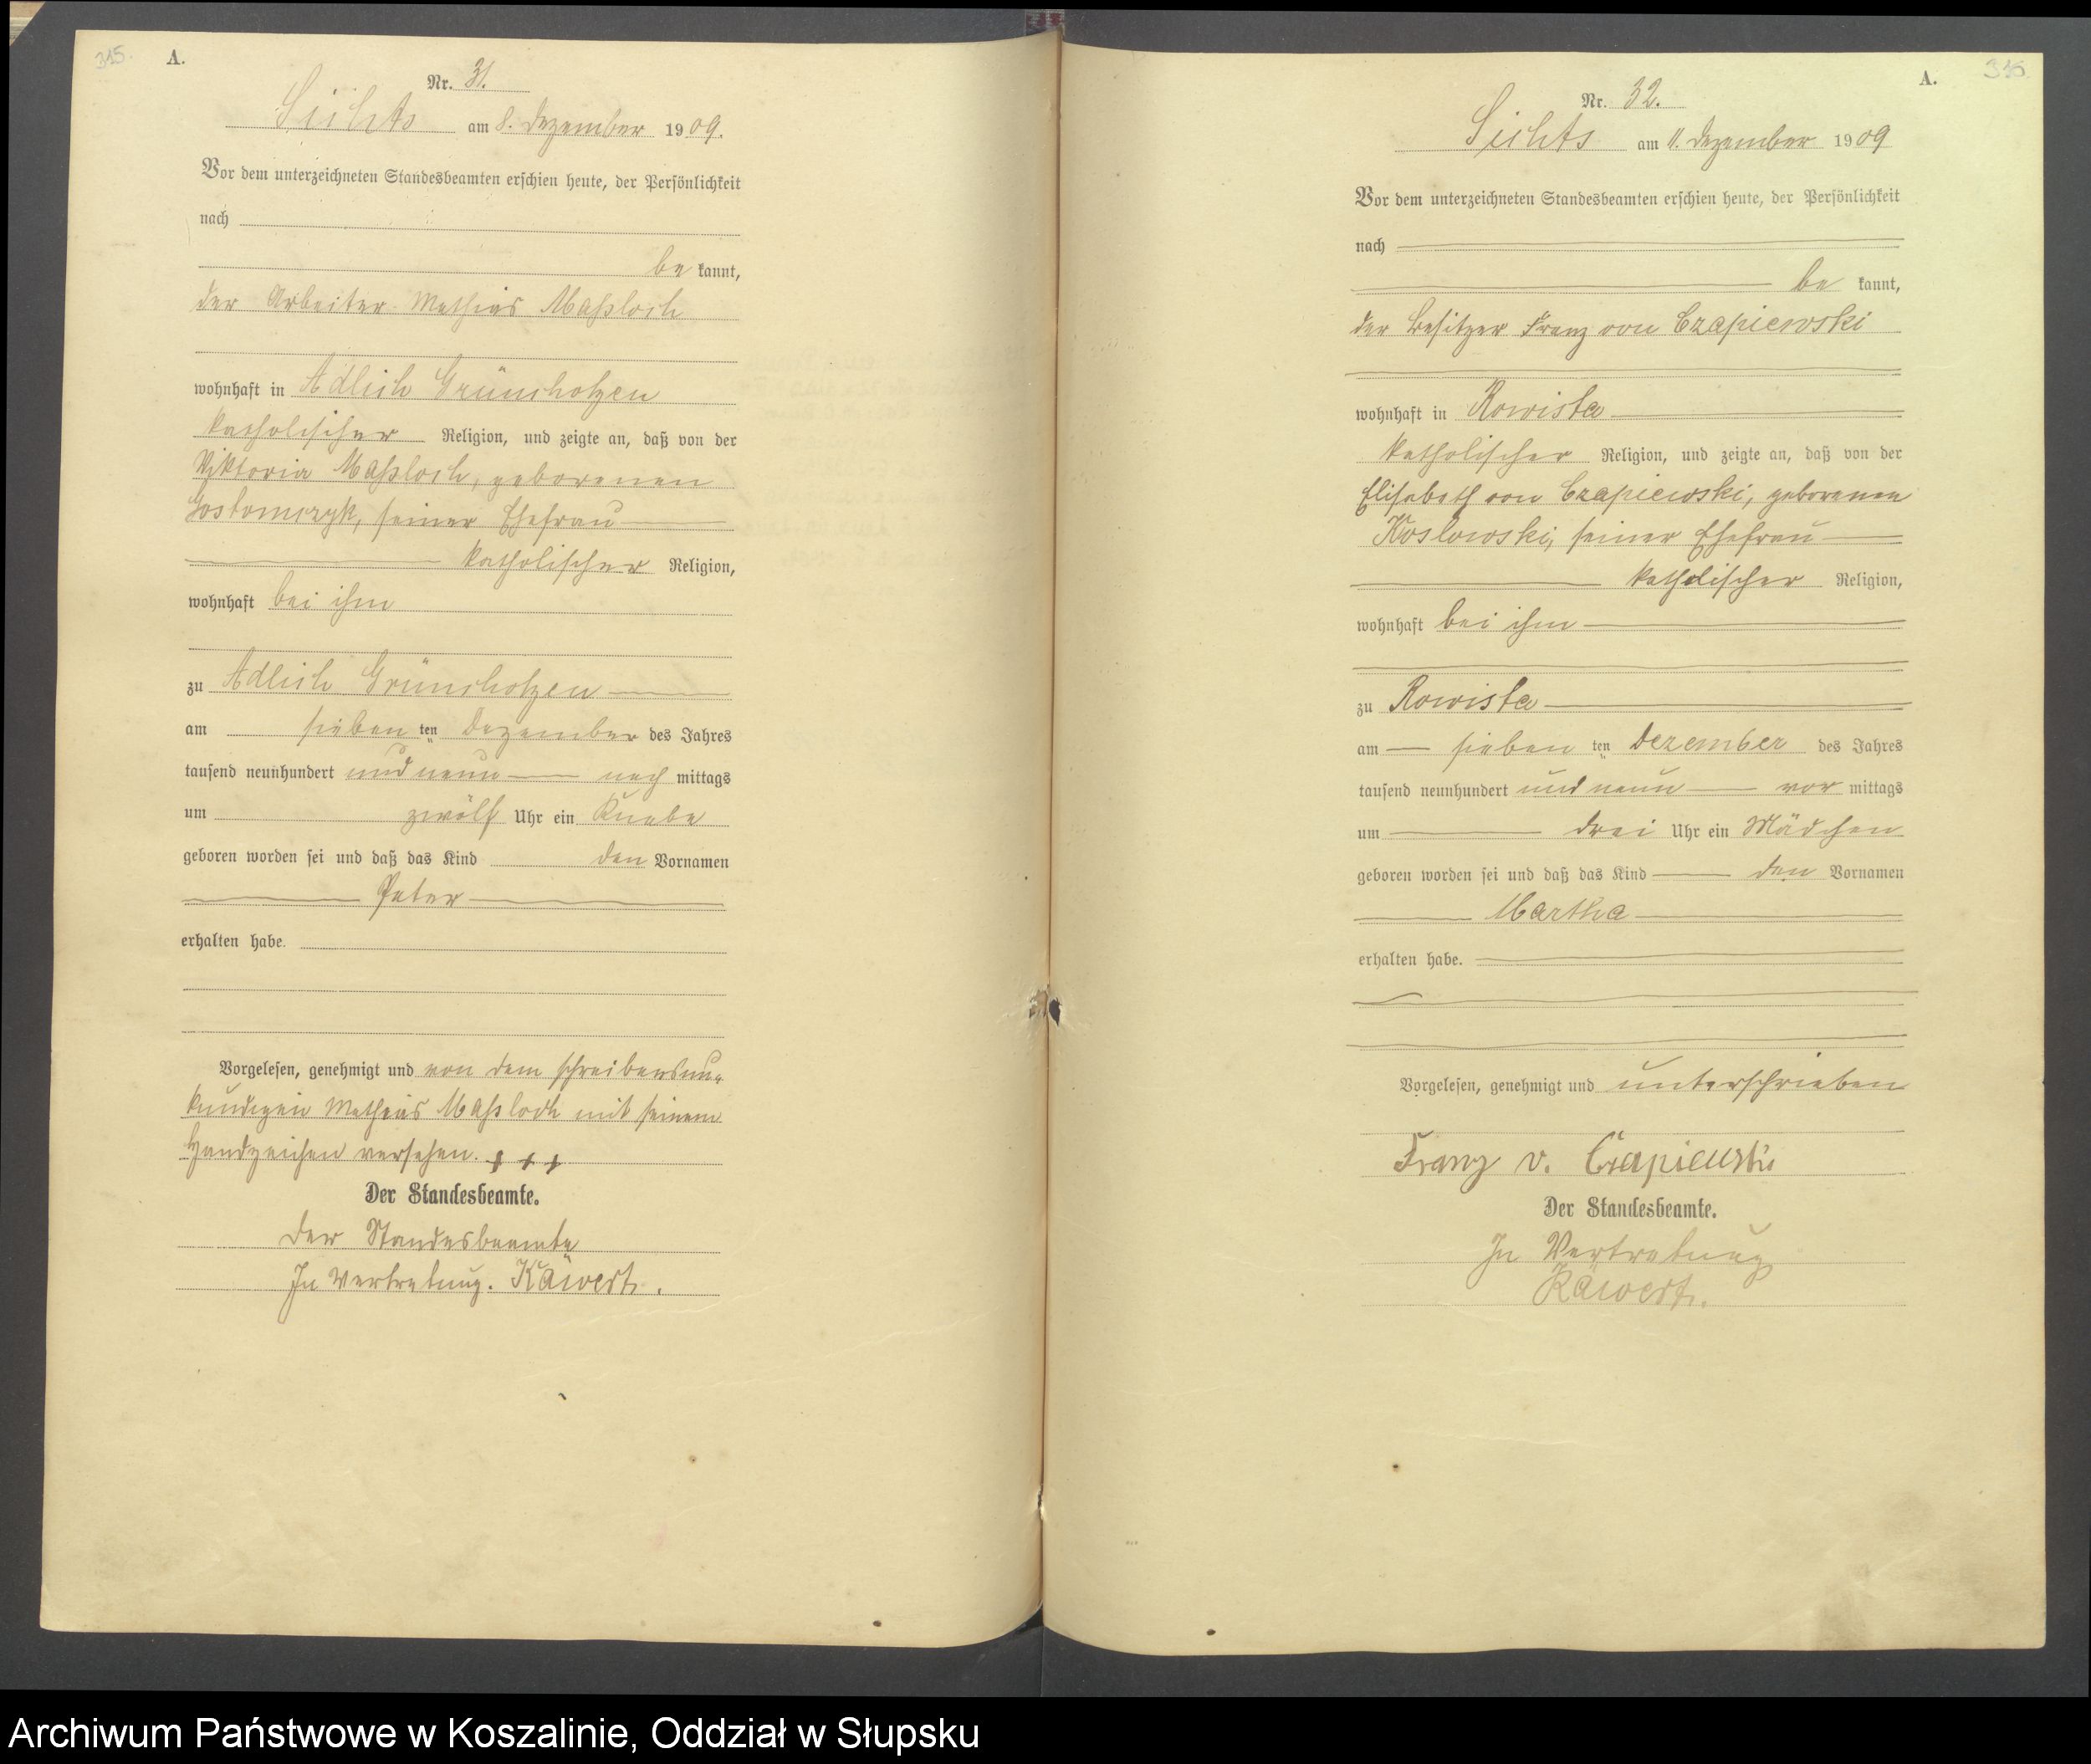 315.
A.
Nr. 31.
Sichts am 8. Dezember 1909.
Vor dem unterzeichneten Standesbeamten erschien heute, der Persönlichkeit
nach
be kannt,
der Arbeiter Mathias Maßloch
wohnhaft in Adlich Grünchotzen
katholischer Religion, und zeigte an, daß von der
Viktoria Maßloch, geborenen
Gostomczyk, seiner Ehefrau
katholischer Religion,
wohnhaft bei ihm
zu Adlich Grünchotzen
am sieben ten Dezember des Jahres
tausend neunhundert und neun nach mittags
um zwölf Uhr ein Knabe
geboren worden sei und daß das Kind den Vornamen
Peter
erhalten habe.
Vorgelesen, genehmigt und von dem schreibensun-
kundigen Mathias Maßloch mit seinem
Handzeichen versehen. + + +
Der Standesbeamte.
Der Standesbeamte
In Vertretung. Käwert.
316.
A.
Nr. 32.
Sichts am 11. Dezember 1909
Vor dem unterzeichneten Standesbeamten erschien heute, der Persönlichkeit
nach
be kannt,
der Besitzer Franz von Czapiewski
wohnhaft in Rowista
katholischer Religion, und zeigte an, daß von der
Elisabeth von Czapiewski, geborenen
Koslowski, seiner Ehefrau
katholischer Religion,
wohnhaft bei ihm
zu Rowista
am sieben ten Dezember des Jahres
tausend neunhundert und neun vor mittags
um drei Uhr ein Mädchen
geboren worden sei und daß das Kind den Vornamen
Martha
erhalten habe.
Vorgelesen, genehmigt und unterschrieben
Franz v. Czapiewski
Der Standesbeamte.
In Vertretung
Käwert.
Archiwum Państwowe w Koszalinie, Oddział w Słupsku